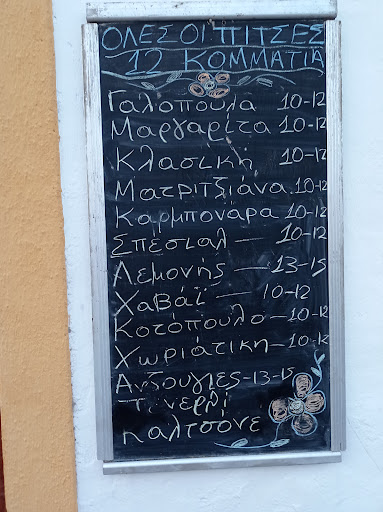 ΟΛΕΣ ΟΙ ΠΙΤΣΕΣ
12 ΚΟΜΜΑΤΙΑ
Γαλοπουλα 10-12
Μαργαρίτα 10-12
Κλασική 10-12
Ματριτζιάνα. 10-12
Καρμπονάρα 10-12
Σπέσιαλ — 10-12
Λεμονής — 13-15
Χαβαϊ — 10-12
Κοτόπουλο - 10-12
Χωριάτικη - 10-12
Ανδουγιες - 13-15
Καλτσόνε